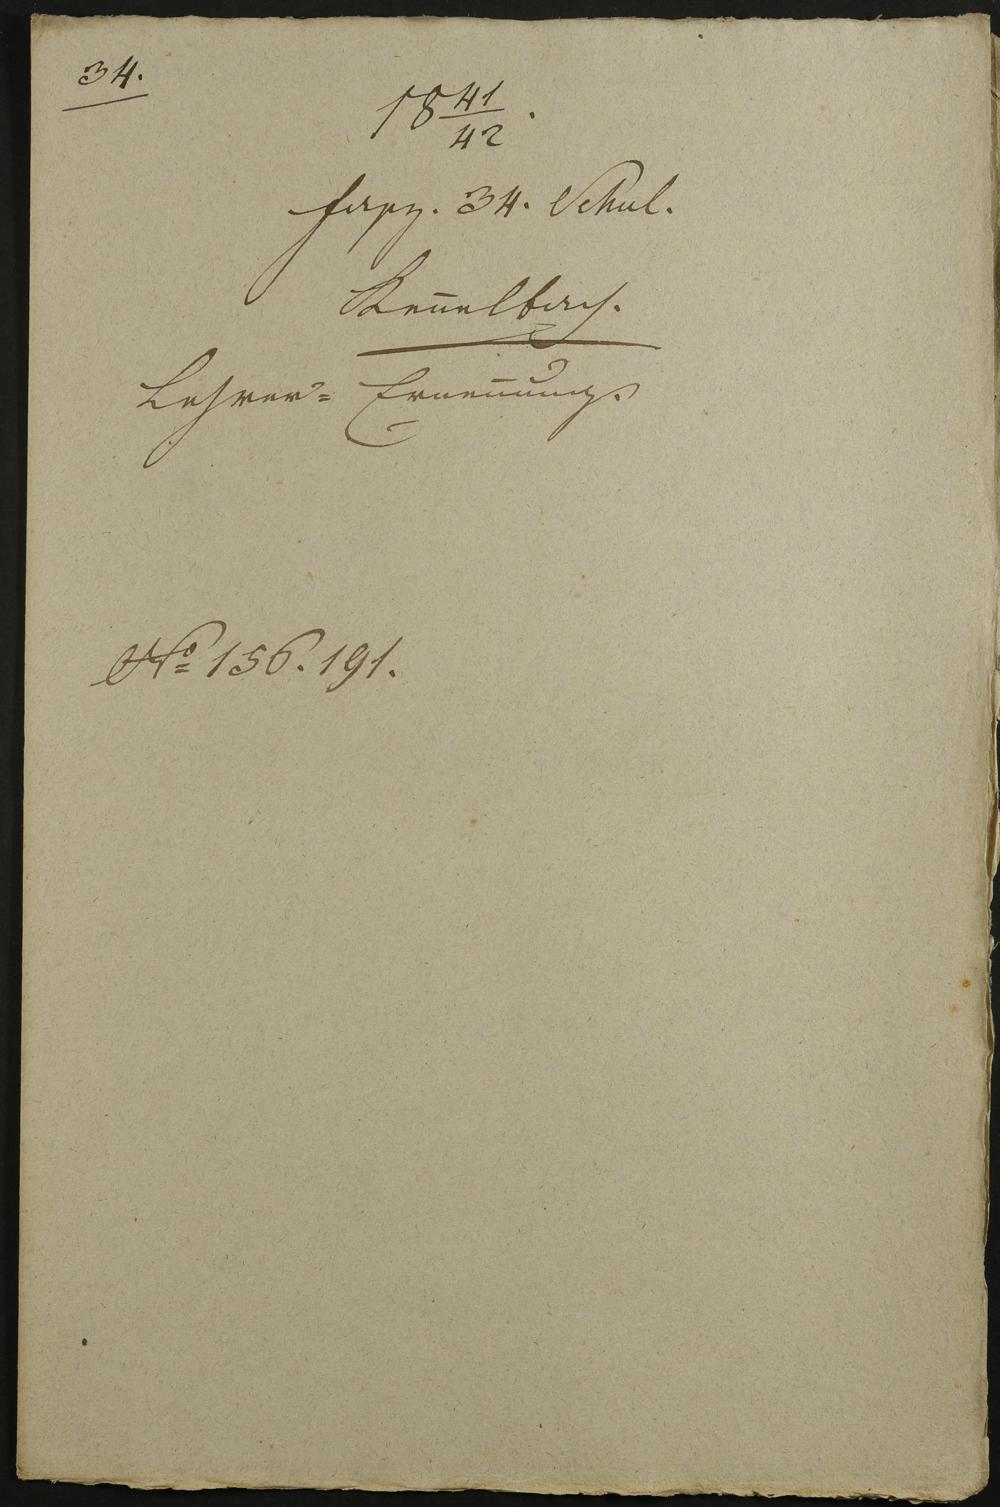 34.
18 41/42.
Fasz. 34. Schul.
Keñelbach.
Lehrer= Erneñung.
No 156. 191.